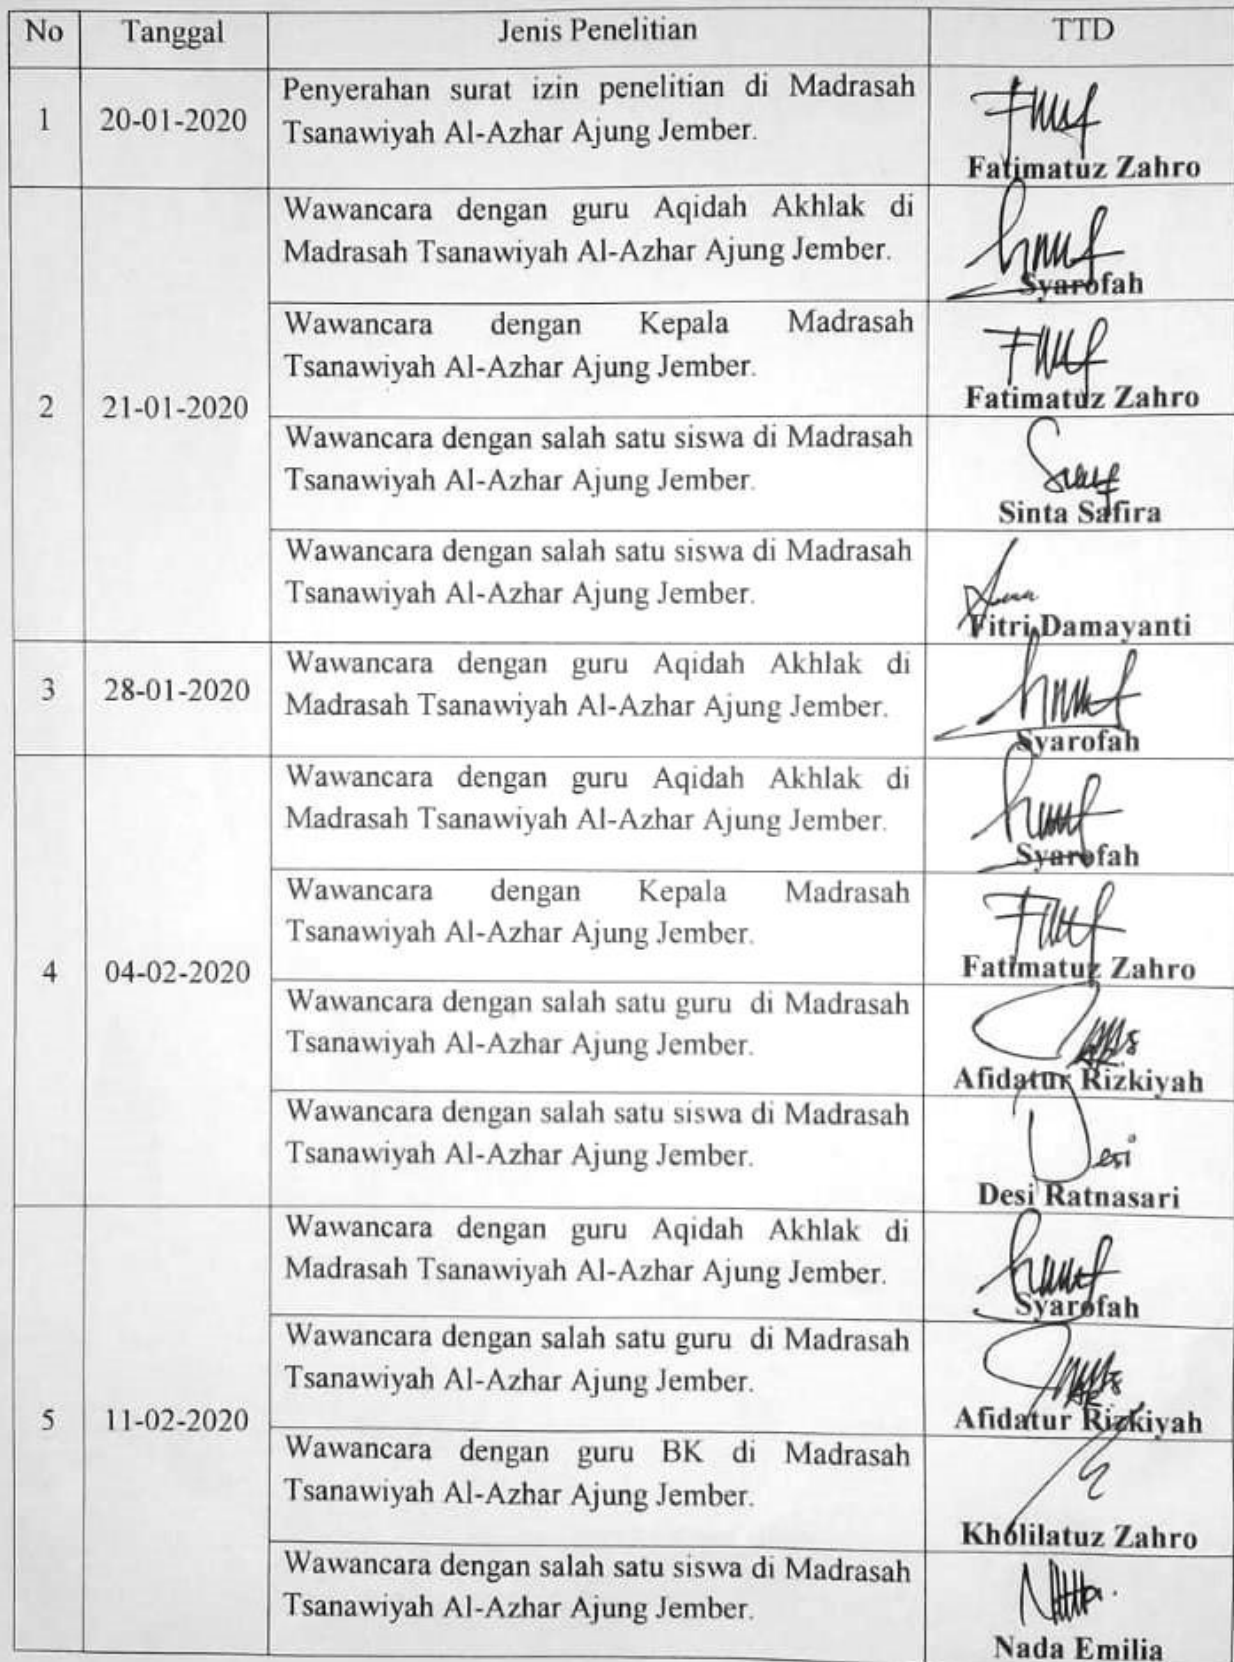 No Tanggal Jenis Penelitian TTD
1 20-01-2020 Penyerahan surat izin penelitian di Madrasah
Tsanawiyah Al-Azhar Ajung Jember.
Fatimatuz Zahro
2 21-01-2020
Wawancara dengan guru Aqidah Akhlak di
Madrasah Tsanawiyah Al-Azhar Ajung Jember.
Syarofah
Wawancara dengan Kepala Madrasah
Tsanawiyah Al-Azhar Ajung Jember.
Fatimatuz Zahro
Wawancara dengan salah satu siswa di Madrasah
Tsanawiyah Al-Azhar Ajung Jember.
Sinta Safira
Wawancara dengan salah satu siswa di Madrasah
Tsanawiyah Al-Azhar Ajung Jember.
Fitri Damayanti
3 28-01-2020
Wawancara dengan guru Aqidah Akhlak di
Madrasah Tsanawiyah Al-Azhar Ajung Jember.
Syarofah
4 04-02-2020
Wawancara dengan guru Aqidah Akhlak di
Madrasah Tsanawiyah Al-Azhar Ajung Jember.
Syarofah
Wawancara dengan Kepala Madrasah
Tsanawiyah Al-Azhar Ajung Jember.
Fatimatuz Zahro
Wawancara dengan salah satu guru di Madrasah
Tsanawiyah Al-Azhar Ajung Jember.
Afidatur Rizkiyah
Wawancara dengan salah satu siswa di Madrasah
Tsanawiyah Al-Azhar Ajung Jember.
Desi
Desi Ratnasari
5 11-02-2020
Wawancara dengan guru Aqidah Akhlak di
Madrasah Tsanawiyah Al-Azhar Ajung Jember.
Syarofah
Wawancara dengan salah satu guru di Madrasah
Tsanawiyah Al-Azhar Ajung Jember.
Afidatur Rizkiyah
Wawancara dengan guru BK di Madrasah
Tsanawiyah Al-Azhar Ajung Jember.
Kholilatuz Zahro
Wawancara dengan salah satu siswa di Madrasah
Tsanawiyah Al-Azhar Ajung Jember.
Nada Emilia